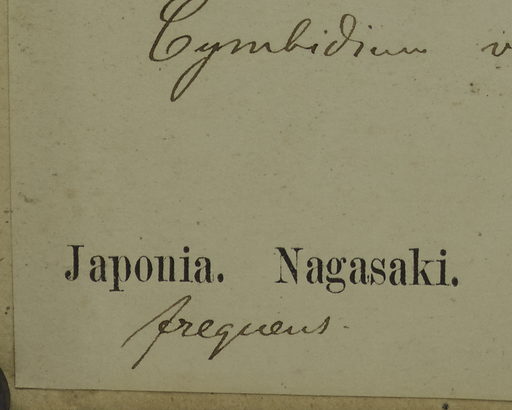 Cymbidium
Japonia. Nagasaki.
frequens.